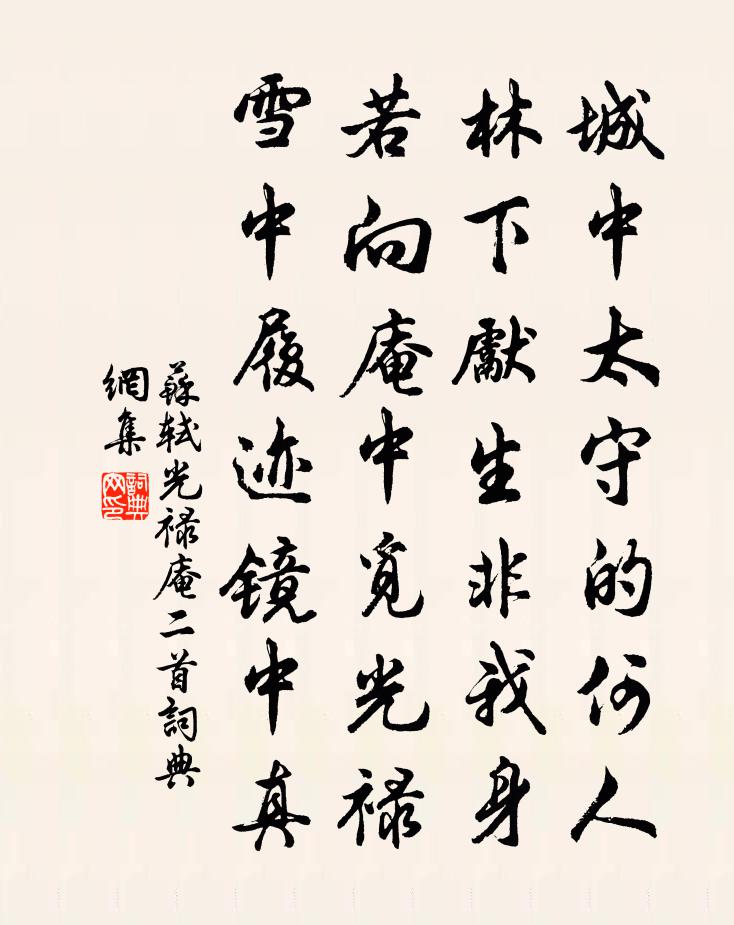 城中太守的何人
林下獻生非我身
若向庵中觅光禄
雪中履迹镜中真
蘇軾光禄庵二首詞典
網集
詞典
网印